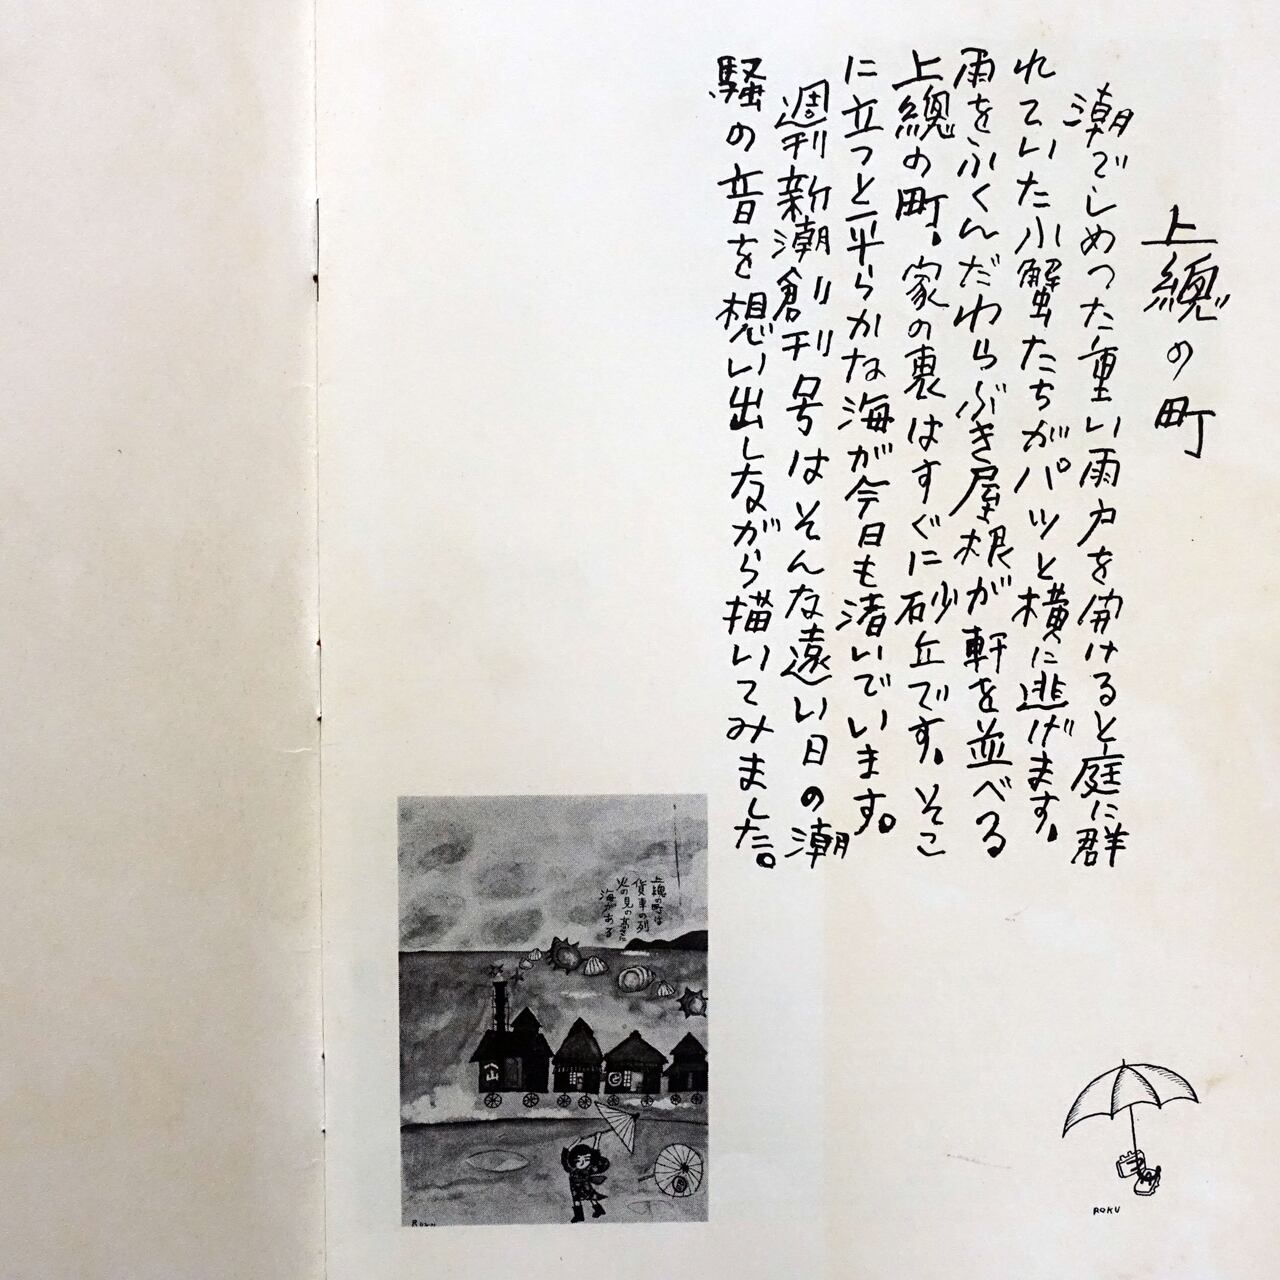 上總の町
潮でしめった重い雨戸を開けると庭に群
れていた小蟹たちがパッと横に逃げます。
雨をふくんだわらぶき屋根が軒を並べる
上總の町。家の裏はすぐに砂丘です。そこ
に立つと平らかな海が今日も渚いでいます。
週刊新潮創刊号はそんな遠い日の潮
騒の音を想い出しながら描いてみました。
上總の町は
貨車の列
火の見の高さに
海がある
ROKU
ROKU